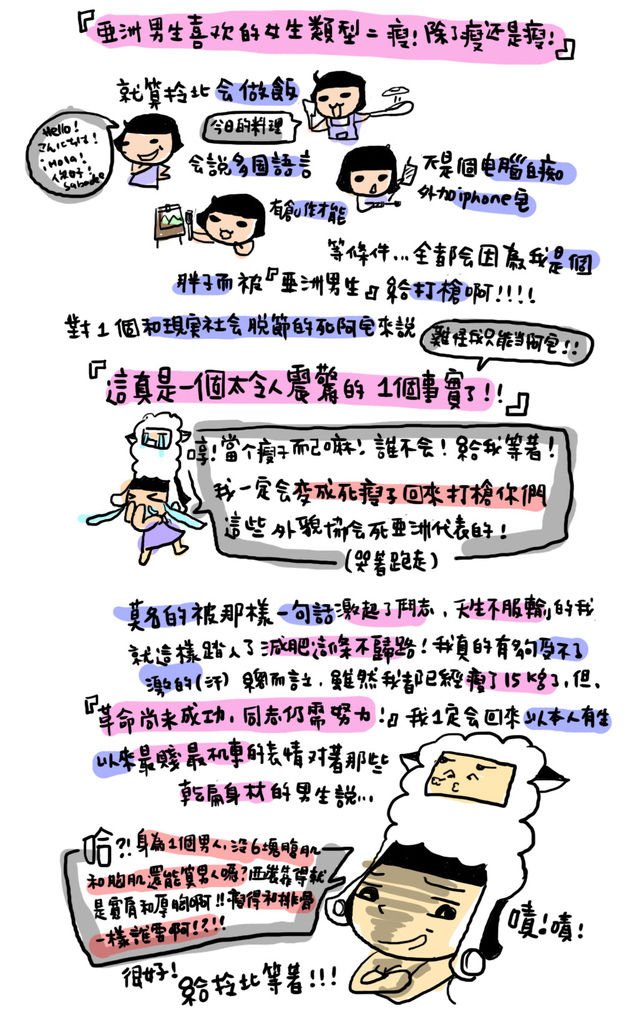 『亞洲男生喜欢的女生類型=瘦!除了瘦还是瘦!』
就算拎北会做飯
今日的料理
Hello!
こんにちは!
Hola!
你好!
会說多国語言
不是個电腦白痴
外加iphone宅
有創作才能
等條件...全都会因為我是個
胖子而被『亞洲男生』給打槍啊!!!!
對1個和現実社会脱節的死阿宅來說
難怪我只能当阿宅!!
『這真是一個太令人震驚的1個事實了!!』
哼!當个瘦子而已嘛!誰不会!給我等着!
我一定会变成死瘦子回來打槍你們
這些外貌協会死亞洲代表的!
(哭著跑走)
莫名的被那樣一句話激起了鬥志,天生不服輸的我
就這樣踏入了減肥這條不歸路!我真的有夠受不了
激的(汗)總而言之,雖然我都已經瘦了15kg了,但,
『革命尚未成功,同志仍需努力!』我1定会回來以本人有生
以來最賤最机車的表情对著那些
乾扁身材的男生說...
哈?!身為1個男人,沒6塊腹肌
和胸肌還能算男人嗎?西裝靠得就
是寬肩和厚胸啊!!瘦得和排骨
一樣誰要啊!?!!
嘖!嘖!
很好!
給拎北等着!!!